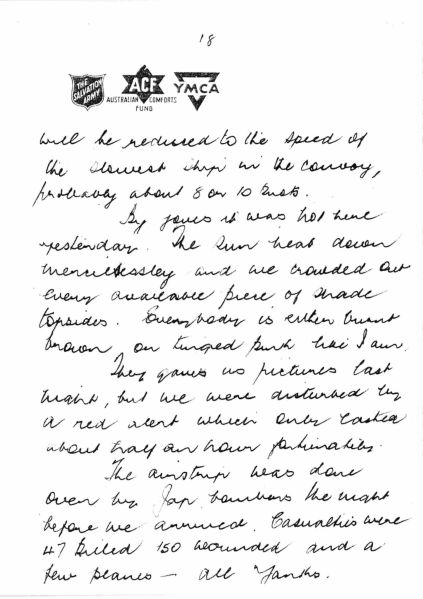 18
THE SALVATION ARMY
ACF
AUSTRALIAN COMFORTS FUND
YMCA
will be reduced to the speed of
the slowest ship in the convoy,
probably about 8 or 10 knots.
By joves it was hot here
yesterday. The sun beat down
mercilessley and we crowded out
every available piece of shade
topsides. Everybody is either burnt
brown, or tinged pink like I am.
They gave us pictures last
night, but we were disturbed by
a red alert which only lasted
about half an hour fortunately.
The airstrip was done
over by Jap bombers the night
before we arrived. Casualties were
47 killed 150 wounded and a
few planes – all Yanks.